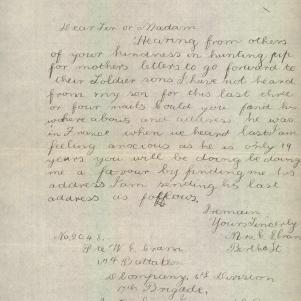 Dear Sir or Madam
Hearing from others
of your kindness in hunting up
for mothers letters to go forward to
their Soldier sons I have not heard
from my son for this last three
or four mails Could you find his
where abouts and address he was
in France when we heard last I am
feeling anxious as he is only 19
years you will be doing be doing
me a favour by finding me his
address I am sending his last
address as follows,
I remain
Yours Sincerly
Mrs E Cram
St
No, 2048,
Pte W. E. Cram
Battalion
D Company, Division
Brigade,